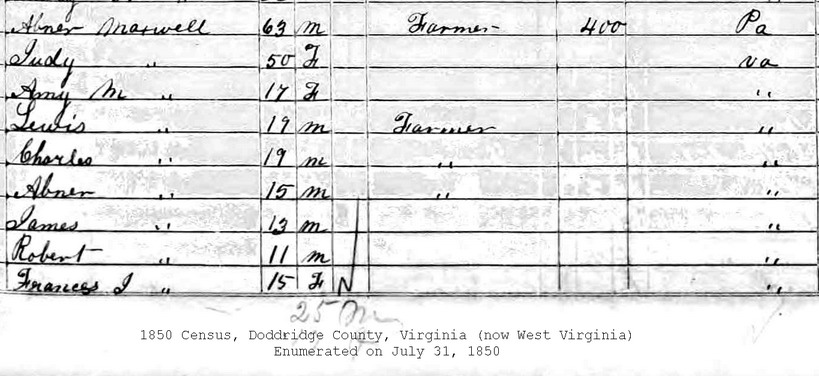 Abner Maxwell 63 m Farmer 400 Pa
Judy " 50 F Va
Amy M " 17 F "
Lewis " 19 m Farmer "
Charles " 19 m " "
Abner " 15 m " "
James " 13 m "
Robert " 11 m "
Frances J " 15 F N "
25 m
1850 Census, Doddridge County, Virginia (now West Virginia)
Enumerated on July 31, 1850